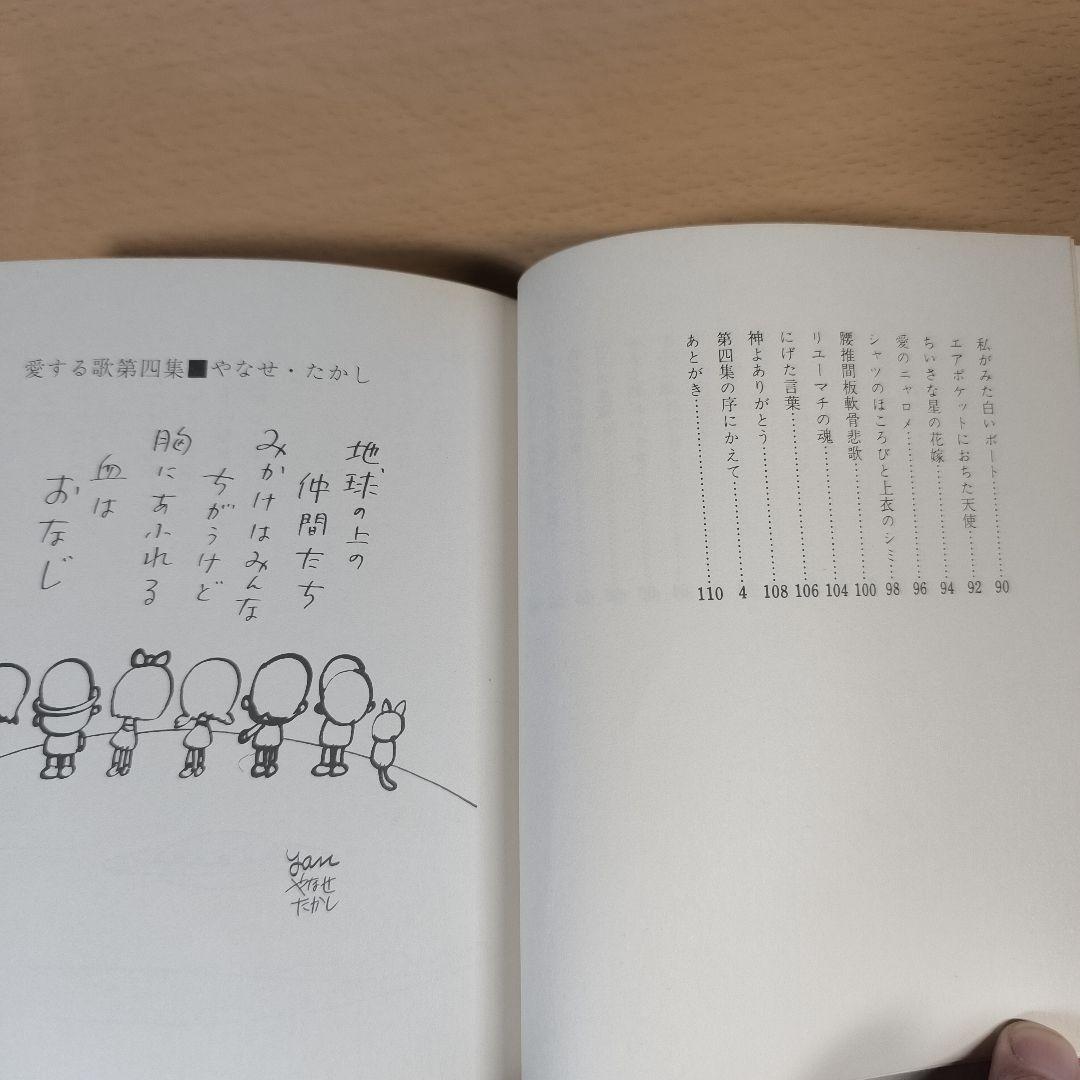 愛する歌第四集■やなせ・たかし
地球の上の
仲間たち
みかけはみんな
ちがうけど
胸にあふれる
血は
おなじ
yan
やなせ
たかし
私がみた白いボート…………90
エアポケットにおちた天使…………92
ちいさな星の花嫁…………94
愛のニャロメ…………96
シャツのほころびと上衣のシミ…………98
腰推間板軟骨悲歌…………100
リユーマチの魂…………104
にげた言葉…………106
神よありがとう…………108
第四集の序にかえて…………4
あとがき…………110